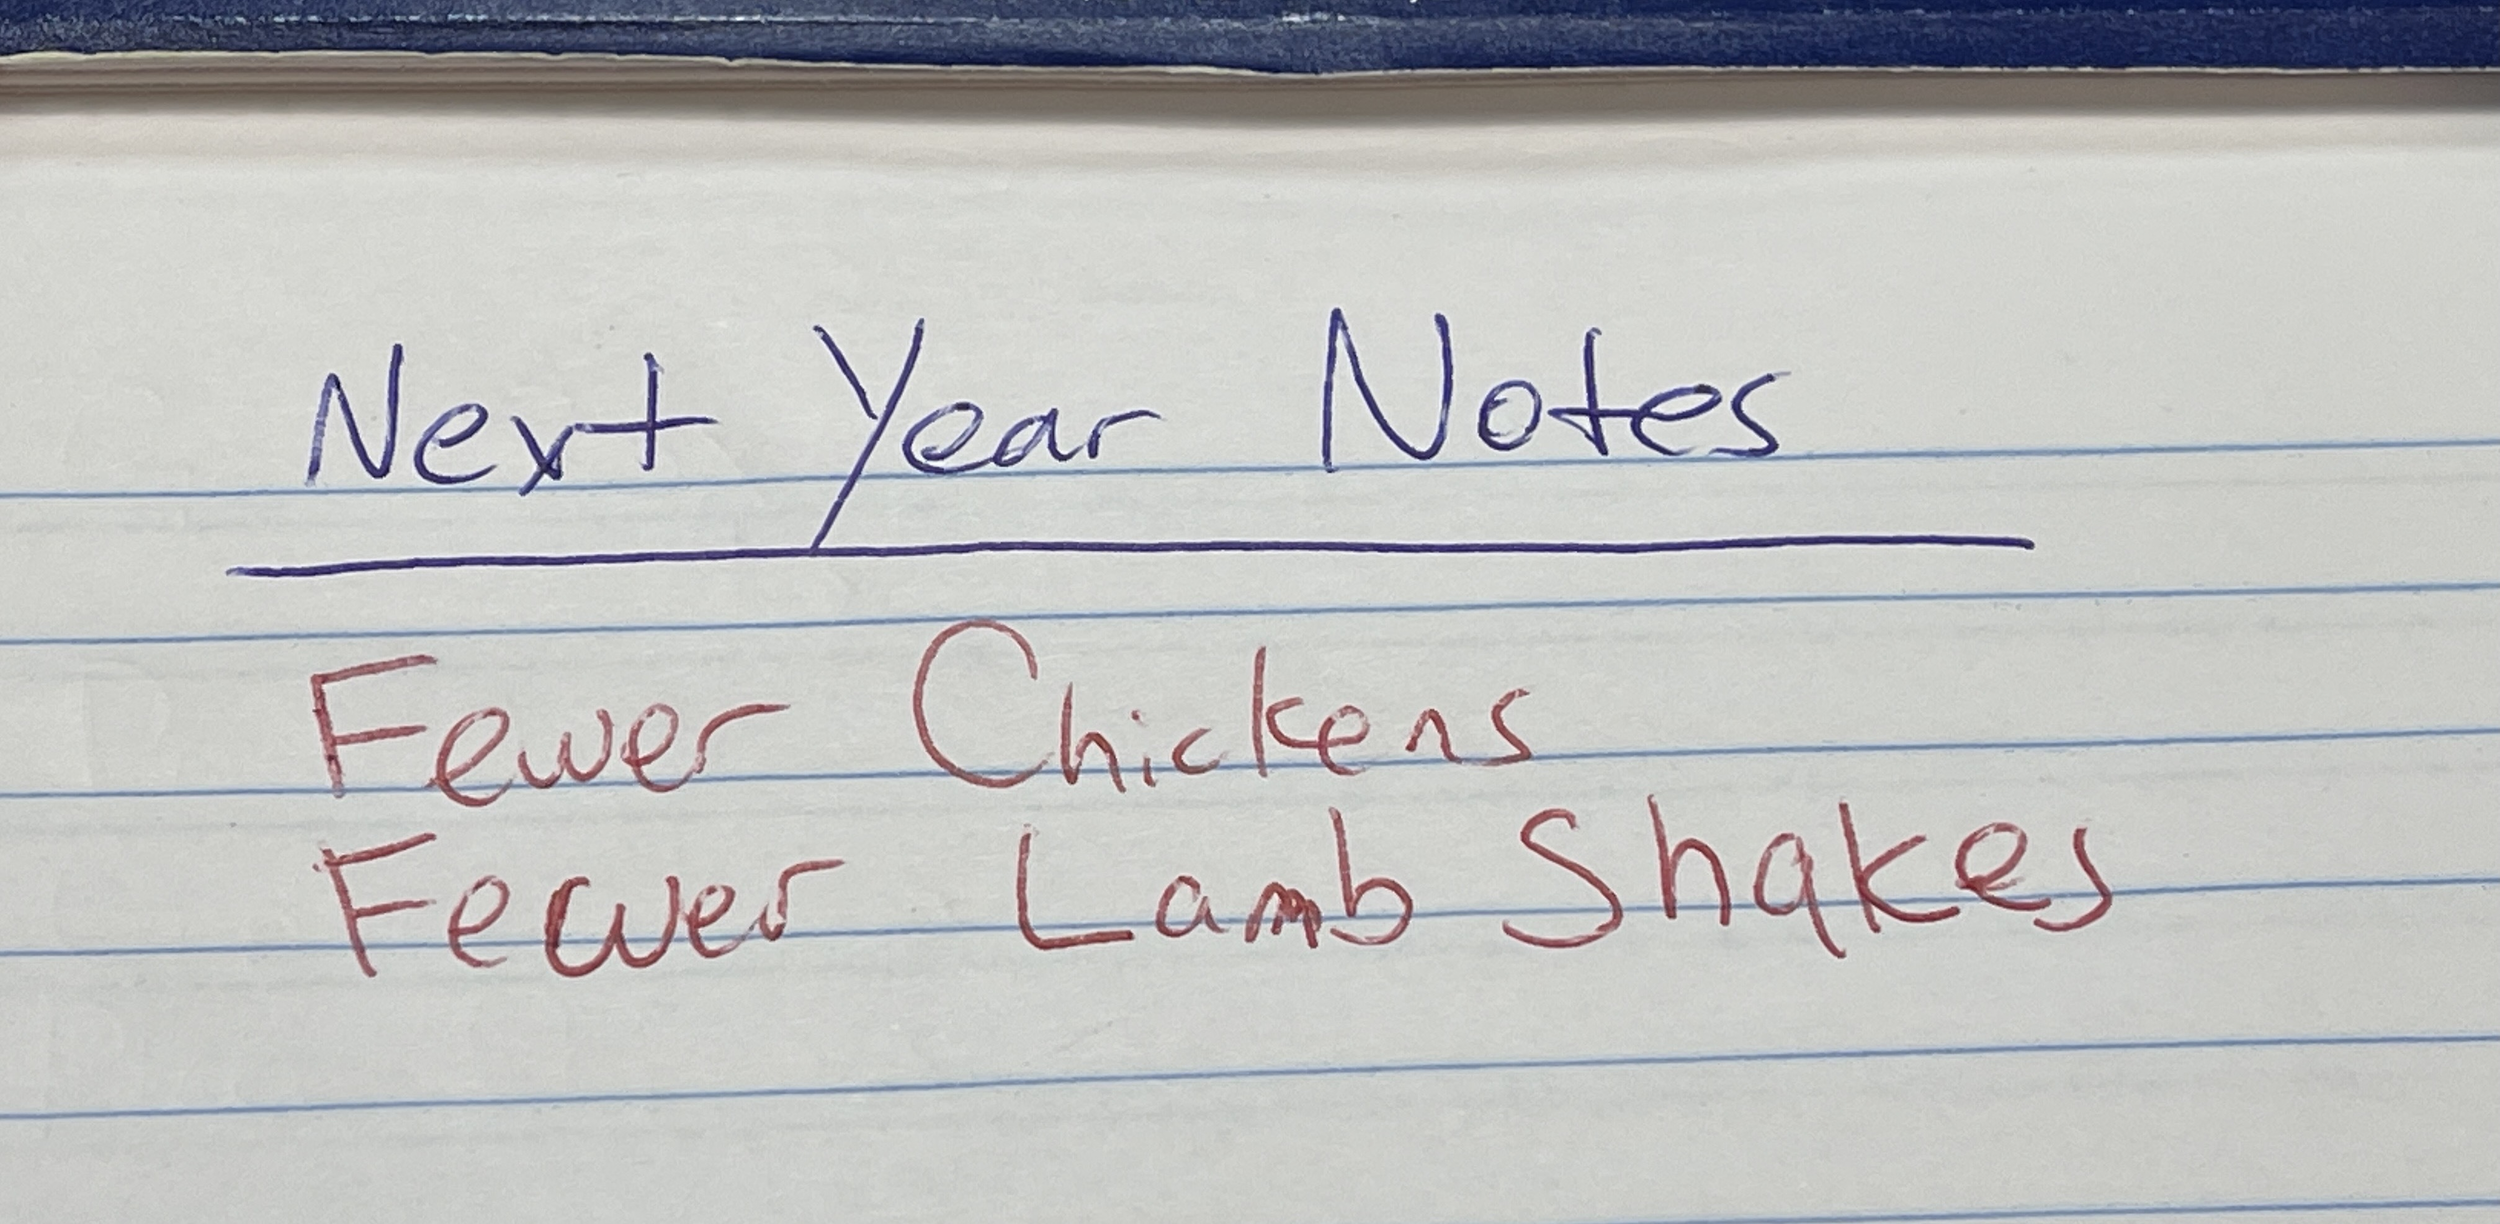 Next Year Notes
Fewer Chickens
Fewer Lamb Shakes